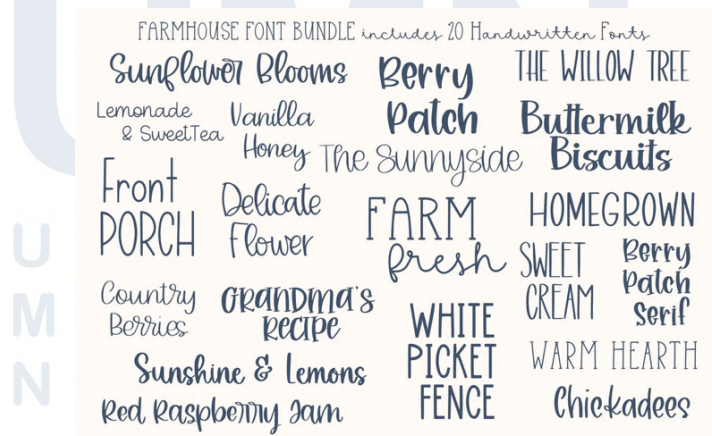 FARMHOUSE FONT BUNDLE includes 20 Handwritten Fonts
Sunflower Blooms
Berry
Patch
THE WILLOW TREE
Lemonade
& SweetTea
Vanilla
Honey
Buttermilk
Biscuits
The Sunnyside
Front
PORCH
Delicate
Flower
FARM
fresh
HOMEGROWN
SWEET
CREAM
Berry
Patch
Serif
Country
Berries
GRANDMA'S
RECIPE
WHITE
PICKET
FENCE
WARM HEARTH
Sunshine & Lemons
Red Raspberry Jam
Chickadees
U
M
N